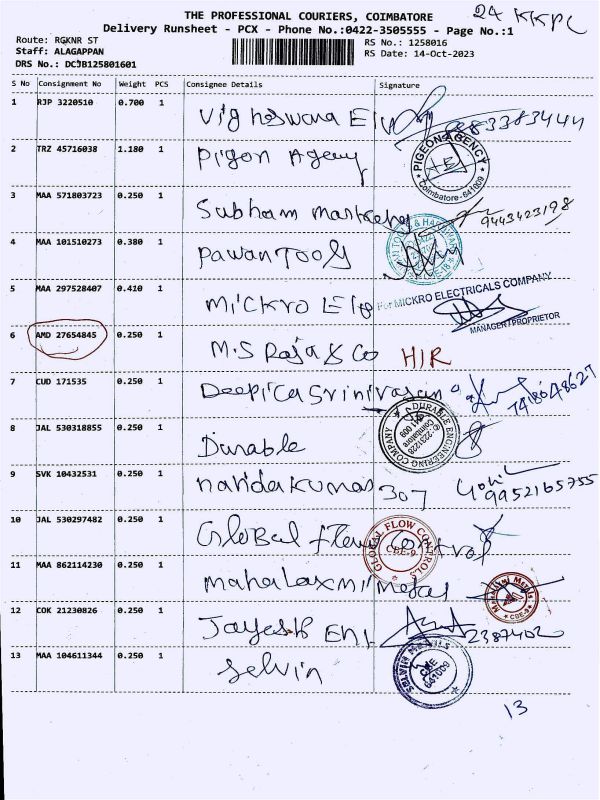 THE PROFESSIONAL COURIERS, COIMBATORE
24 KKPC
Delivery Runsheet - PCX - Phone No.:0422-3505555 - Page No.:1
Route: RGKNR ST
RS No.: 1258016
Staff: ALAGAPPAN
RS Date: 14-Oct-2023
DRS No.: DCJB125801601
S No Consignment No Weight PCS Consignee Details Signature
1 RJP 3220510 0.700 1 Vigneswara El
2 TRZ 45716038 1.180 1 Pigon Agency
PIGEON AGENCY
Coimbatore-641009
3 MAA 571803723 0.250 1 Subham Marketing
9443423198
4 MAA 101510273 0.380 1 Pawan Tools
5 MAA 297528407 0.410 1 Mickro Ele
For MICKRO ELECTRICALS COMPANY
MANAGER/PROPRIETOR
6 AMD 27654845 0.250 1 M.S Raja & Co HIR
7 CUD 171535 0.250 1 Deepica Srinivasan
7418648627
8 JAL 530318855 0.250 1 Durable
DURABLE ENGINEERING COMPANY
9 SVK 10432531 0.250 1 nandakumar 307
9952165755
10 JAL 530297482 0.250 1 Global flow control
GLOBAL FLOW CONTROLS
CBE-9
11 MAA 862114230 0.250 1 Mahalaxmi Metal
CBE-9
12 COK 21230826 0.250 1 Jayesh Ent
2387402
13 MAA 104611344 0.250 1 Selvin
SELVIN METALS
CBE
641009
13